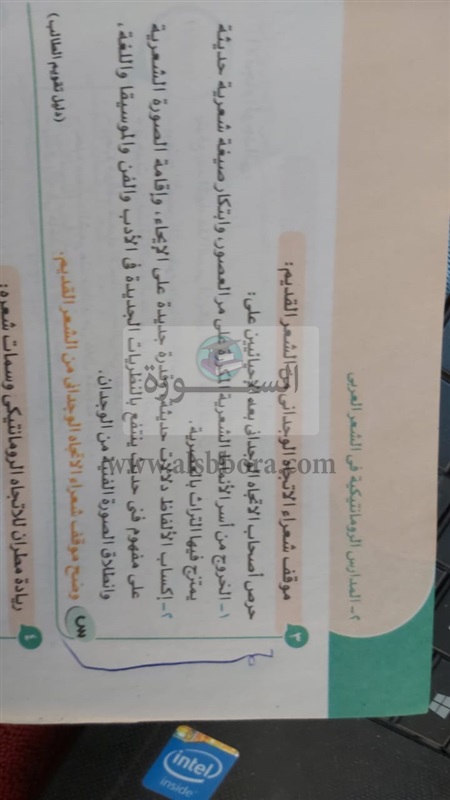 ٢- المدارس الرومانتيكية فى الشعر العربى
٣
موقف شعراء الاتجاه الوجدانى من الشعر القديم:
حرص أصحاب الاتجاه الوجدانى بعد الإحيائيين على:
١- الخروج من أسر الأنماط الشعرية على مر العصور، وابتكار صيغة شعرية حديثة
يمتزج فيها التراث بالعصرية.
٢- إكساب الألفاظ دلالات حديثة وقدرة جديدة على الإيحاء، وإقامة الصورة الشعرية
على مفهوم فنى حديث ينتفع بالنظريات الجديدة فى الأدب والفن والموسيقا واللغة،
وانطلاق الصورة الفنية من الوجدان.
س
وضح موقف شعراء الاتجاه الوجدانى من الشعر القديم.
(دليل تقويم الطالب)
٤
ريادة مطران للاتجاه الرومانتيكى وسمات شعره:
السبورة
www.alsbbora.com
intel
inside